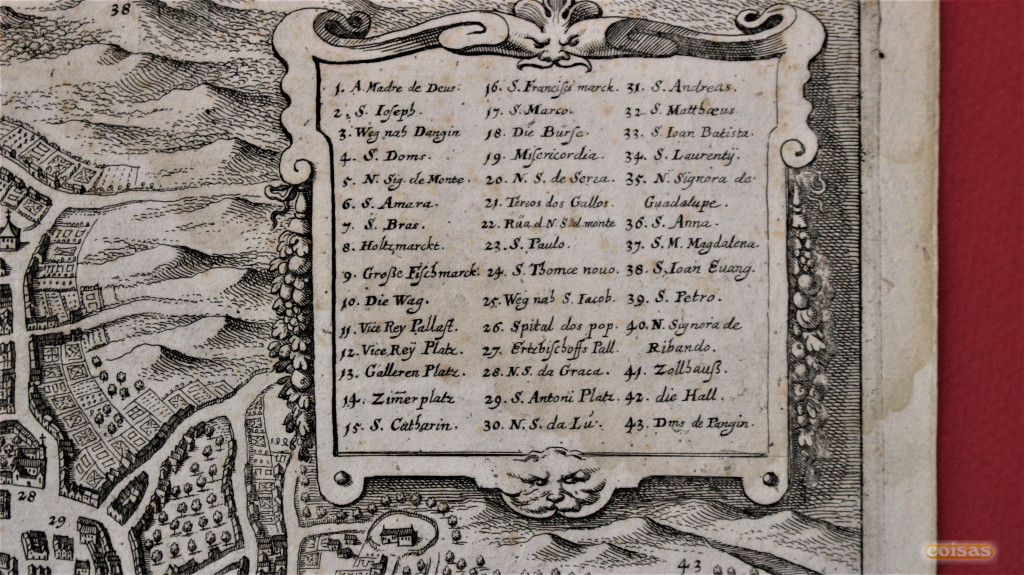 38
1. A Madre de Deus:
2. S. Ioseph.
3. Weg nah Dangin
4. S. Doms.
5. N. Sig. de Monte.
6. S. Amara.
7. S. Bras.
8. Holtzmarckt.
9. Große Fischmarck.
10. Die Wag.
11. Vice Rey Pallast.
12. Vice Reÿ Platz.
13. Galleren Platz.
14. Zim̅erplatz
15. S. Catharin.
16. S. Francisci marck.
17. S. Marco.
18. Die Bürse.
19. Misericordia.
20. N. S. de Serra.
21. Tereos dos Gallos.
22. Rüa d N. S. d. monte
23. S. Paulo.
24. S. Thomæ novo.
25. Weg nah S. Iacob.
26. Spital dos pop.
27. Ertzbischoffs Pall.
28. N. S. da Graca.
29. S. Antoni Platz.
30. N. S. da Lu.
31. S. Andreas.
32. S. Matthæus
33. S. Ioan Batista.
34. S. Laurentÿ.
35. N. Signora de
Guadalupe.
36. S. Anna.
37. S. M. Magdalena.
38. S. Ioan Evang.
39. S. Petro.
40. N. Signora de
Ribando.
41. Zollhauß.
42. die Hall.
43. Dms de Pangin.
28
29
43
coisas